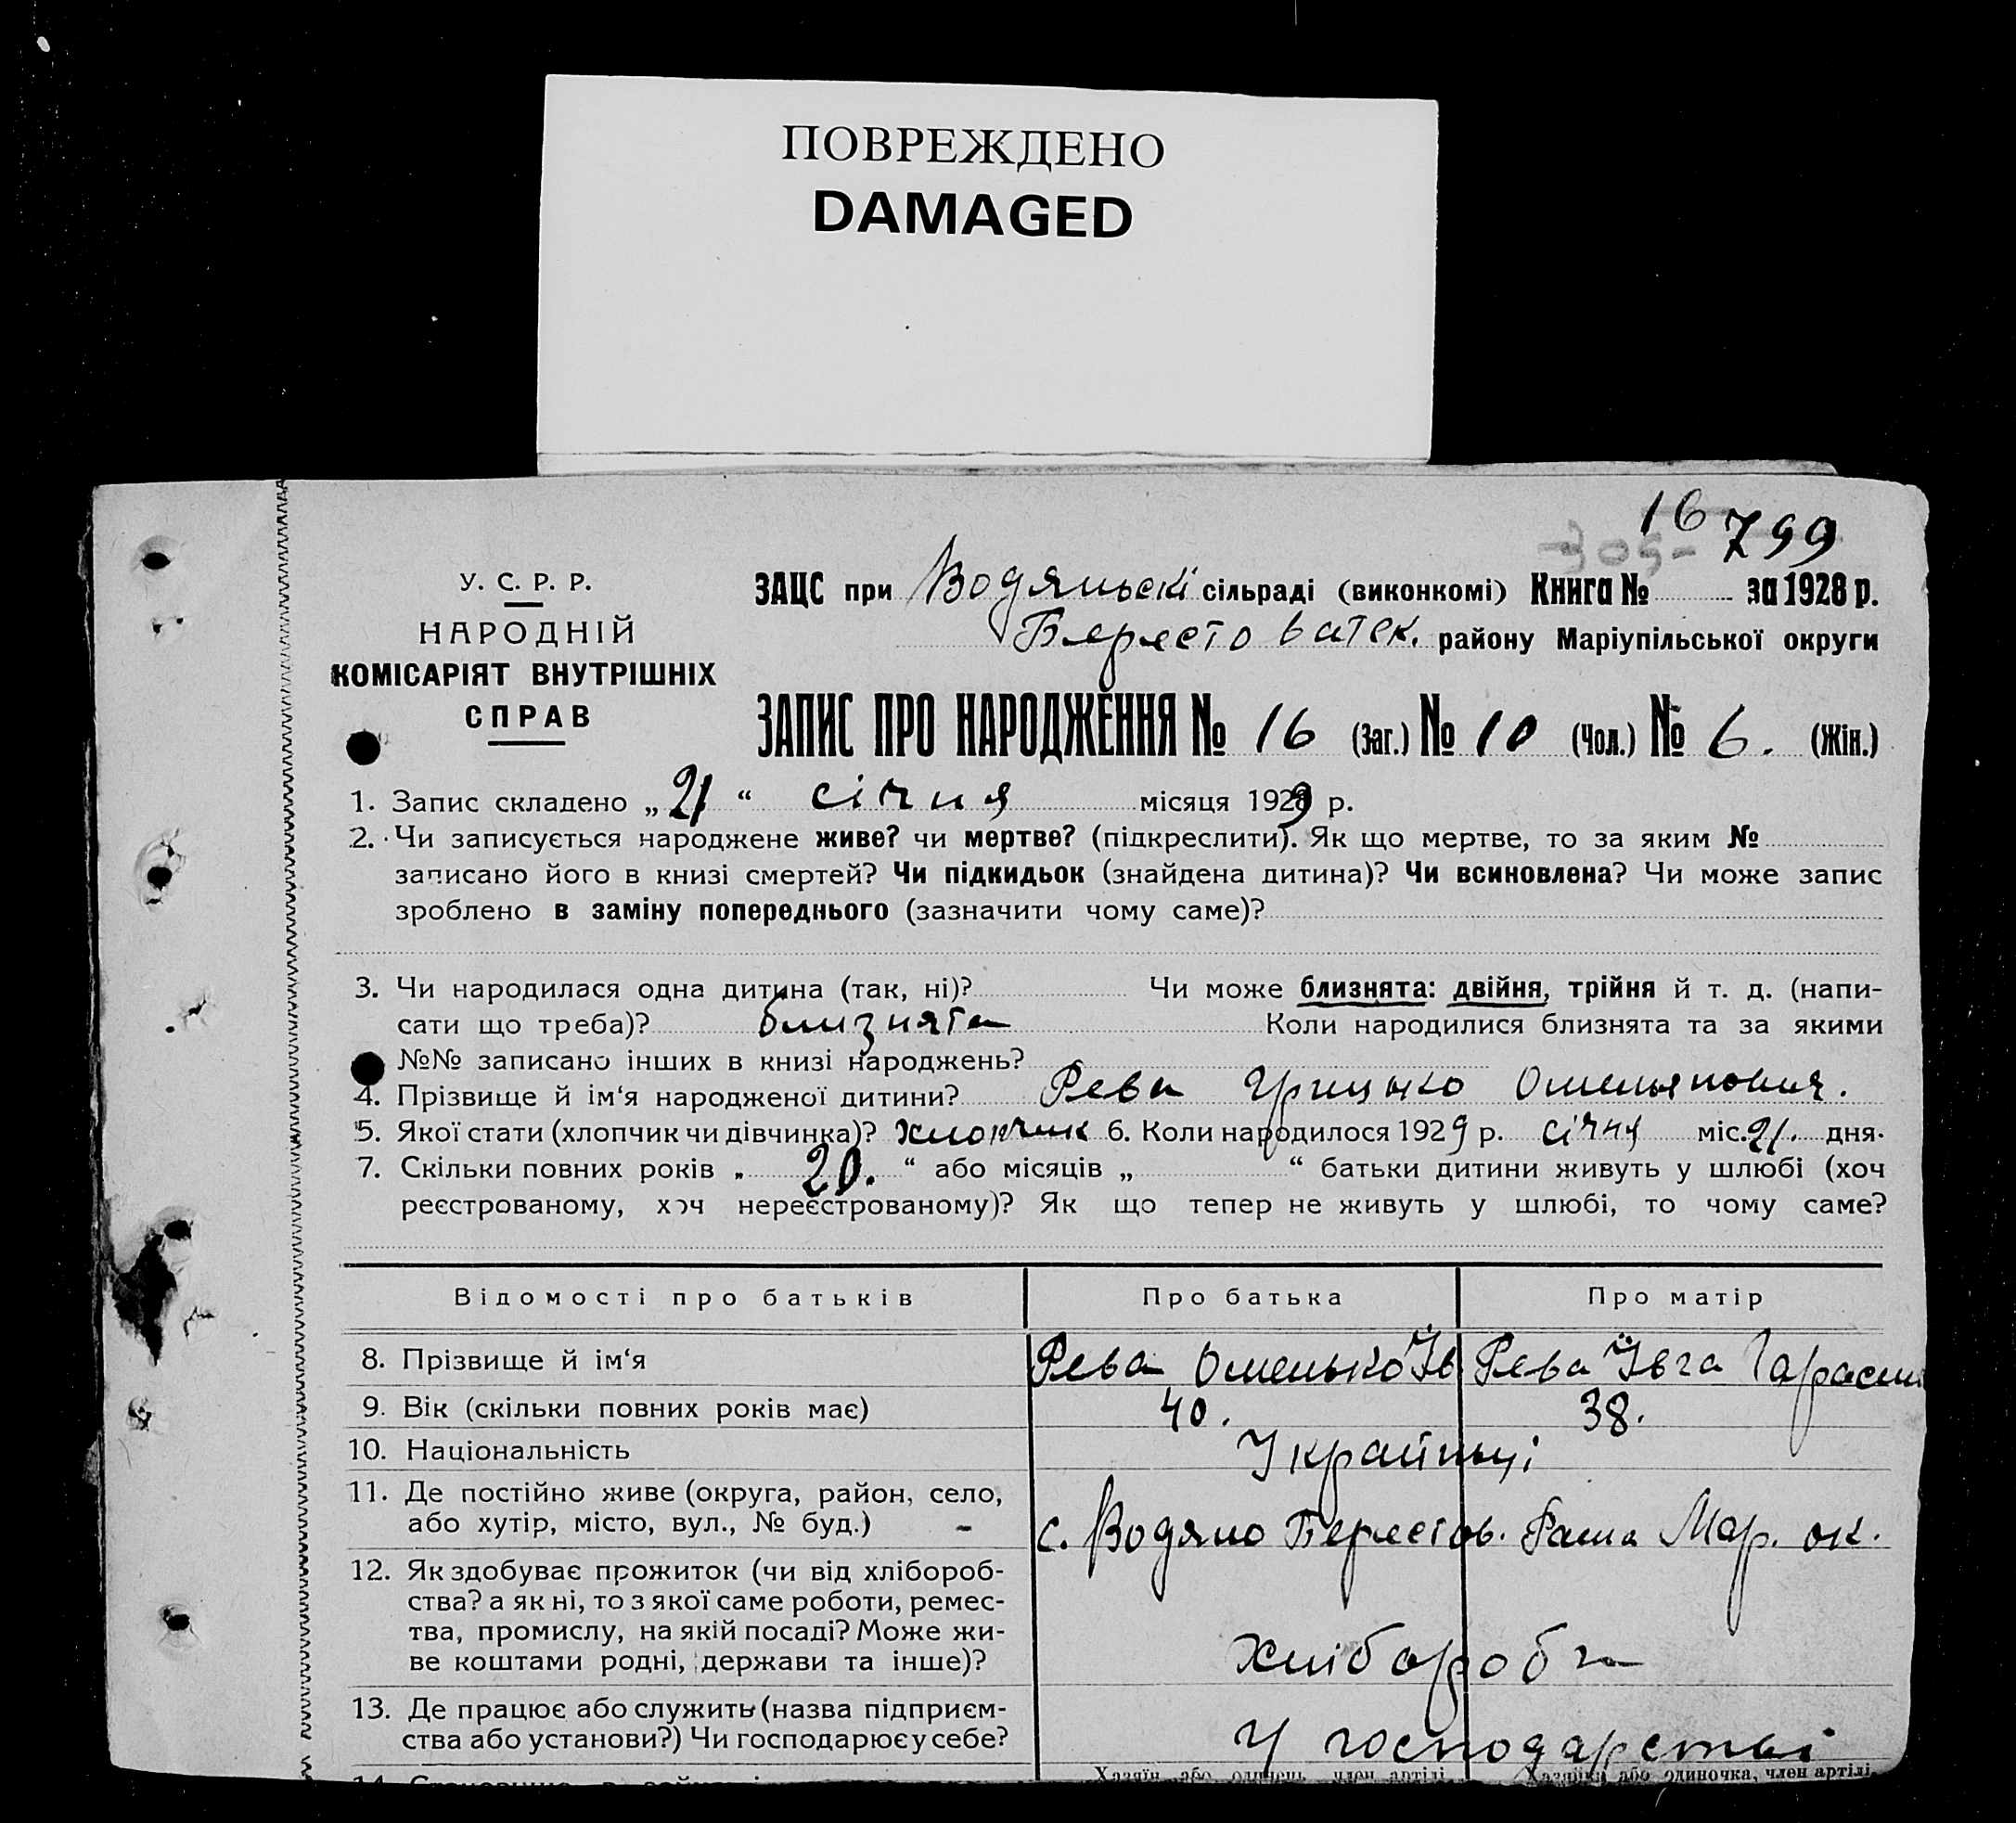 ПОВРЕЖДЕНО
DAMAGED
16
799
305-
У. С. Р. Р.
НАРОДНІЙ
КОМІСАРІЯТ ВНУТРІШНІХ
СПРАВ
ЗАЦС при Водянські сільраді (виконкомі) Книга № за 1928 р.
Берестоватск. району Маріупільської округи
ЗАПИС ПРО НАРОДЖЕННЯ № 16 (Заг.) № 10 (Чол.) № 6. (Жін.)
1. Запис складено „21“ січня місяця 1929 р.
2. Чи записується народжене живе? чи мертве? (підкреслити). Як що мертве, то за яким №
записано його в книзі смертей? Чи підкидьок (знайдена дитина)? Чи всиновлена? Чи може запис
зроблено в заміну попереднього (зазначити чому саме)?
3. Чи народилася одна дитина (так, ні)? Чи може близнята: двійня, трійня й т. д. (напи-
сати що треба)? близнята Коли народилися близнята та за якими
№№ записано інших в книзі народжень?
4. Прізвище й ім‘я народженої дитини? Рева Грицько Омельянович.
5. Якої стати (хлопчик чи дівчинка)? хлопчик 6. Коли народилося 1929 р. січня міс. 21. дня.
7. Скільки повних років „ 20. “ або місяців „ “ батьки дитини живуть у шлюбі (хоч
реєстрованому, хоч нереєстрованому)? Як що тепер не живуть у шлюбі, то чому саме?
Відомості про батьків Про батька Про матір
8. Прізвище й ім‘я Рева Оменько Ів Рева Ївга Тарасии
9. Вік (скільки повних років має) 40. 38.
10. Національність Українці
11. Де постійно живе (округа, район, село,
або хутір, місто, вул., № буд.) - с. Водяно Берестов. Мар. ок.
12. Як здобуває прожиток (чи від хлібороб-
ства? а як ні, то з якої саме роботи, ремес-
тва, промислу, на якій посаді? Може жи-
ве коштами родні, держави та інше)? хлібороб
13. Де працює або служить (назва підприєм-
ства або установи?) Чи господарює у себе? У господарстві
Хазяїн або одинець, член артілі Хазяйка або одиночка, член артілі,